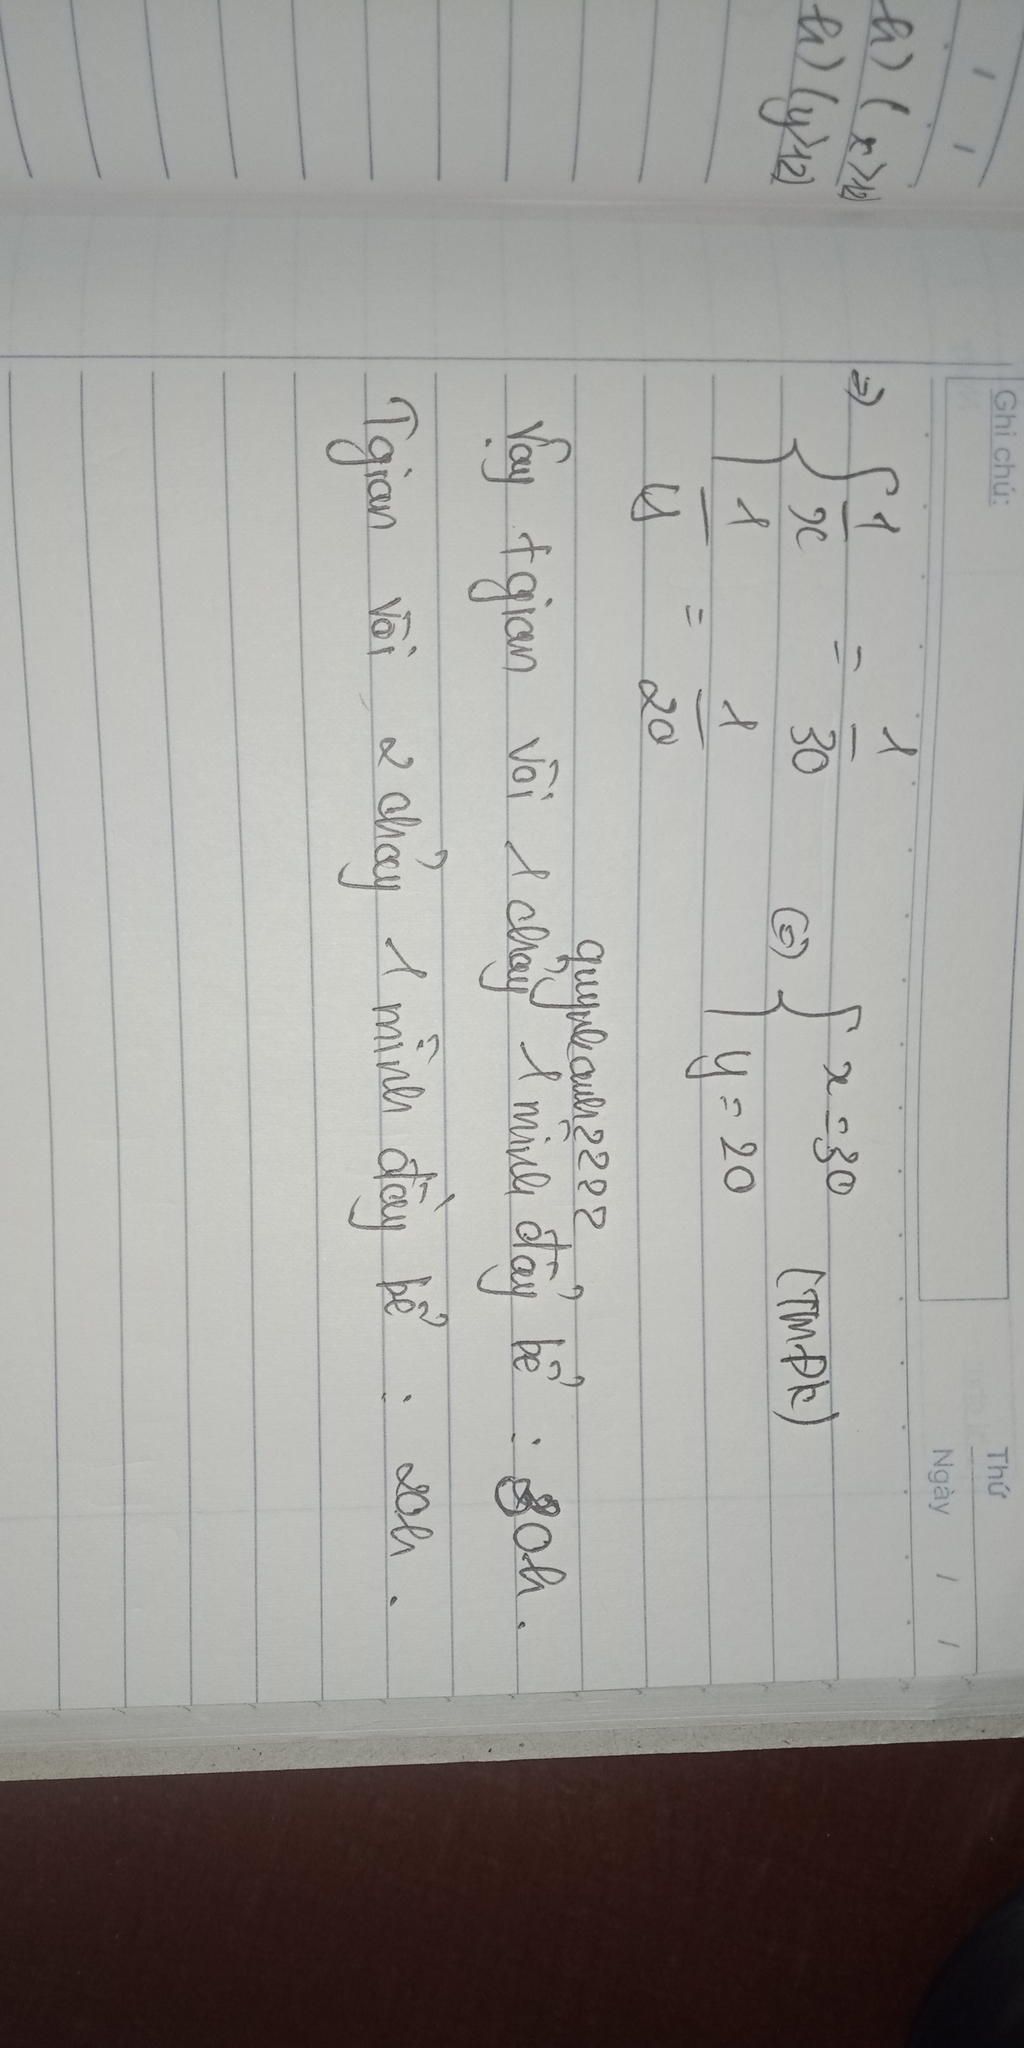 h) (x>12)
h) (y>12)
Ghi chú:
Thứ
Ngày / /
=> { 1/x = 1/30 (=) { x = 30 (TMĐK)
1/y = 1/20 y = 20
quynhanh2222
Vậy tgian vòi 1 chảy 1 mình đầy bể : 30h.
Tgian vòi 2 chảy 1 mình đầy bể : 20h.